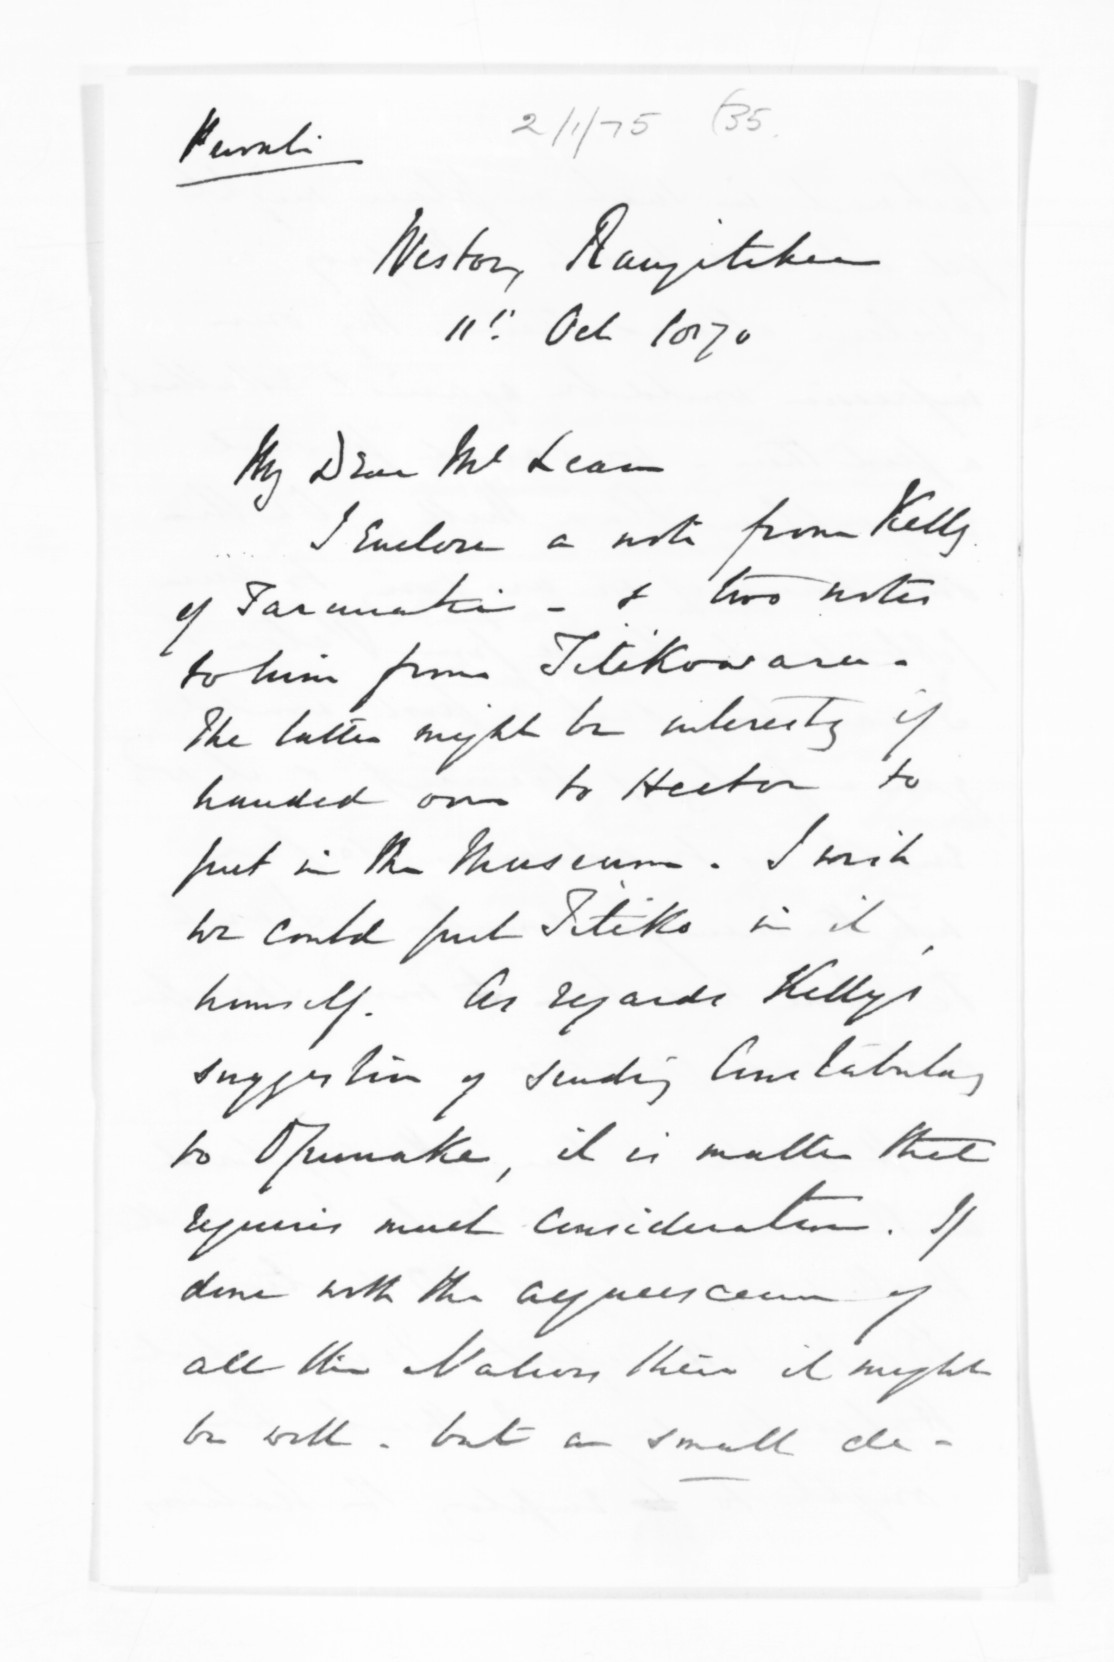 Private
2/1/75 (35.
Westoe, Rangitikei
11th Oct 1870
My Dear McLean
I enclose a note from Kelly
of Taranaki - & two notes
to him from Titikowaru.
The latter might be interesting if
handed over to Hector to
put in the Museum. I wish
we could put Titiko in it,
himself. As regards Kelly's
suggestion of sending Constabulary
to Opunake, it is matter that
requires much consideration. If
done with the acquiescence of
all the Natives there it might
be well - but a small de-